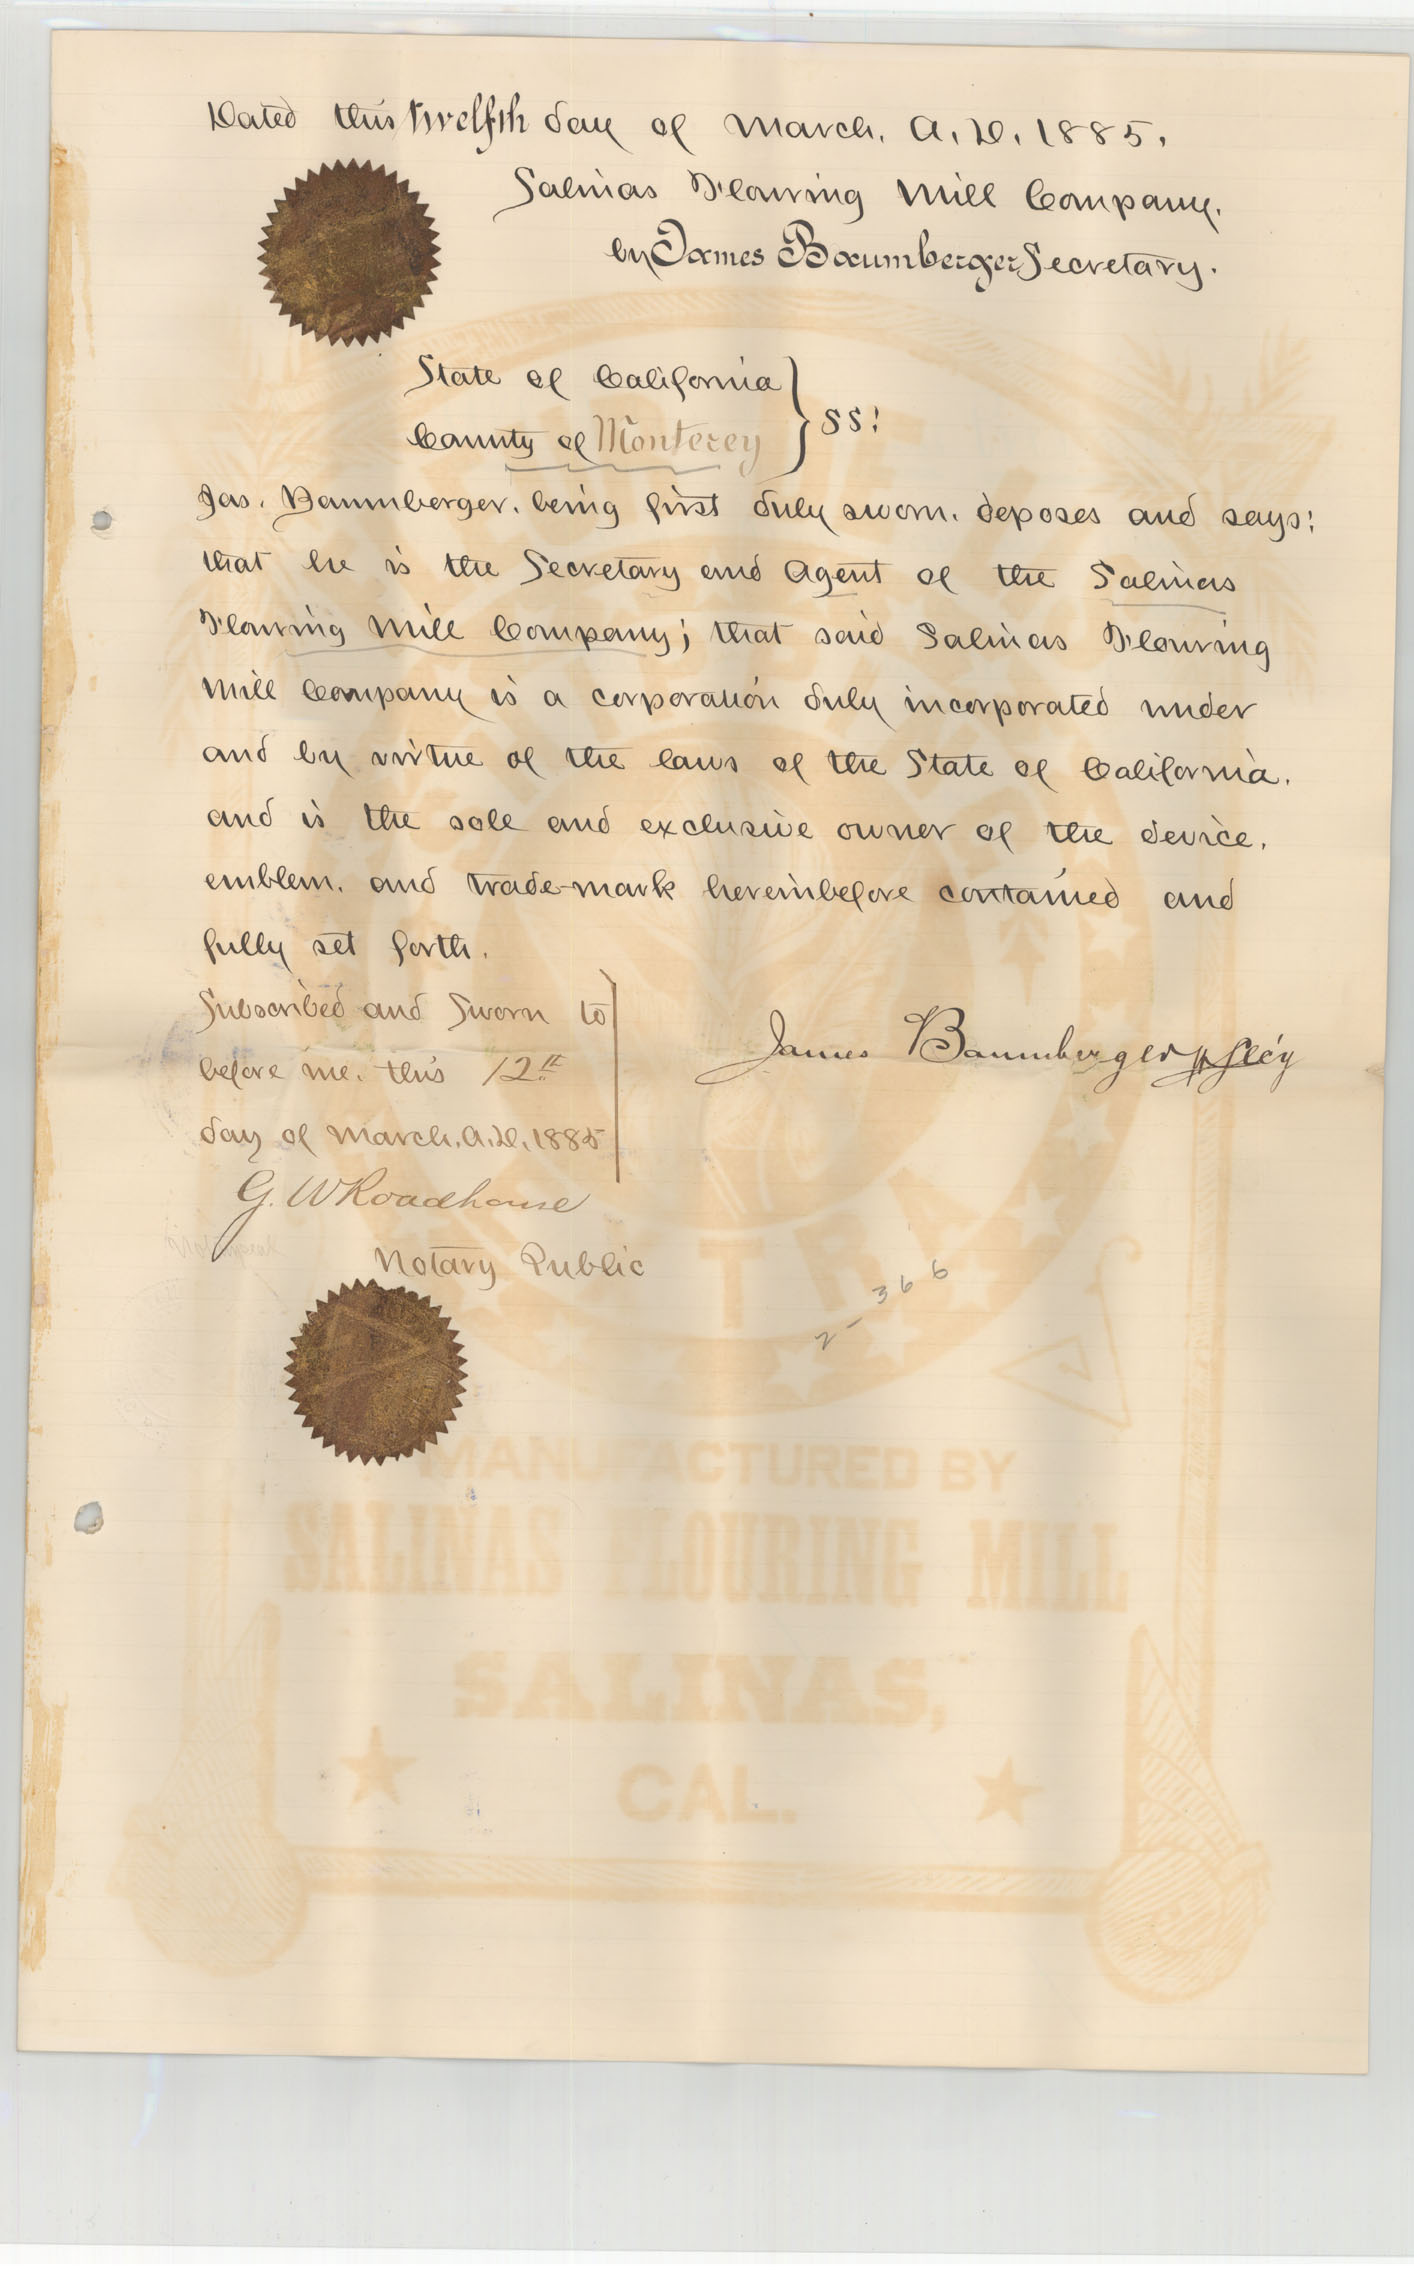 Dated this twelfth day of March, A.D. 1885.
Salinas Flouring Mill Company.
by James Baumberger Secretary.
State of California
County of Monterey } SS:
Jas. Baumberger, being first duly sworn, deposes and says:
that he is the Secretary and Agent of the Salinas
Flouring Mill Company; that said Salinas Flouring
Mill Company is a corporation duly incorporated under
and by virtue of the laws of the State of California,
and is the sole and exclusive owner of the device,
emblem, and trade-mark hereinbefore contained and
fully set forth.
Subscribed and Sworn to
before me, this 12th
day of March, A.D. 1885
James Baumberger
G. W Roadhouse
Notary Public
2-366
MANUFACTURED BY
SALINAS FLOURING MILL
SALINAS,
CAL.